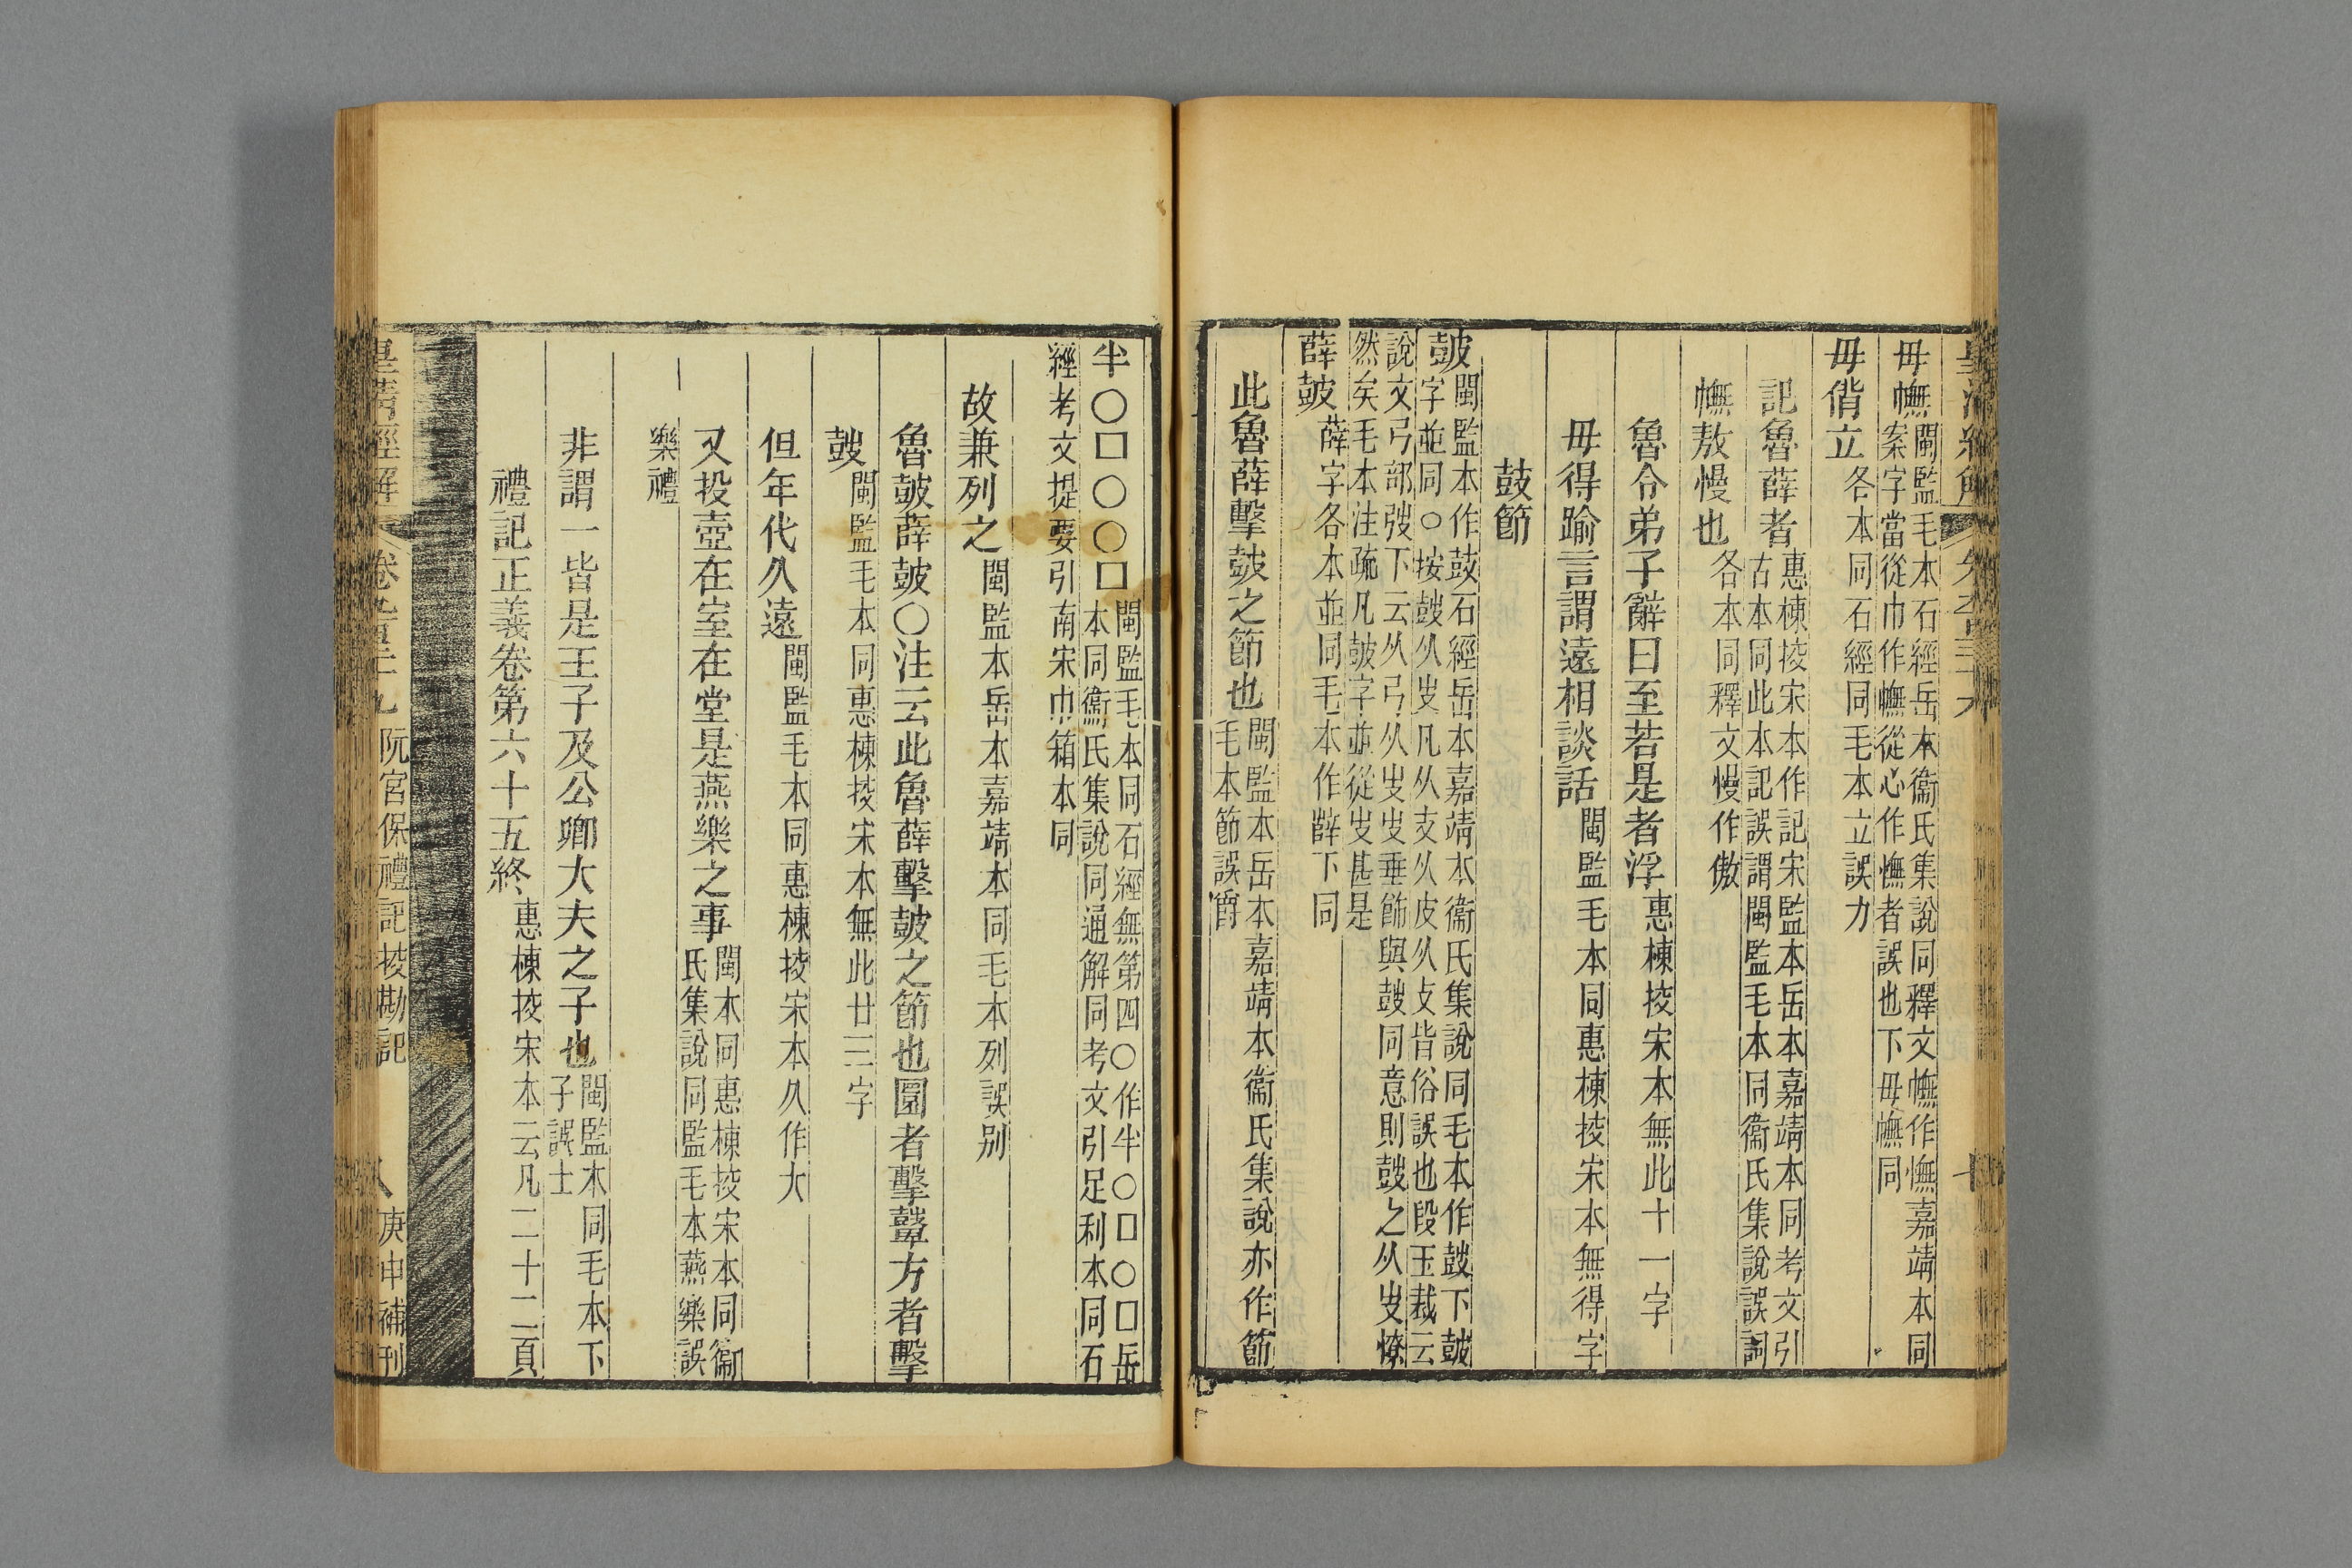 毋幠閩監毛本石經岳本衞氏集說同釋文幠作憮嘉靖本同
案字當從巾作幠從心作憮者誤也下毋幠同
毋偝立各本同石經同毛本立誤力
記魯薛者惠棟挍宋本作記宋監本岳本嘉靖本同考文引
古本同此本記誤謂閩監毛本同衞氏集說誤詞
幠敖慢也各本同釋文慢作傲
魯令弟子辭曰至若是者浮惠棟挍宋本無此十一字
毋得踰言謂遠相談話閩監毛本同惠棟挍宋本無得字
鼓節
皷閩監本作鼓石經岳本嘉靖本衞氏集說同毛本作鼓下皷
字並同○按鼓从𡳾凡从支从皮从攴皆俗誤也段玉裁云
說文弓部弢下云从弓从𡳾𡳾垂飾與鼓同意則鼓之从𡳾憭
然矣毛本注疏凡皷字並從𡳾甚是
薛皷薛字各本並同毛本作辥下同
此魯薛擊鼓之節也閩監本岳本嘉靖本衞氏集說亦作節
毛本節誤爵
半○□○○□閩監毛本同石經無第四○作半○□○□岳
本同衞氏集說同通解同考文引足利本同石
經考文提要引南宋巾箱本同
故兼列之閩監本岳本嘉靖本同毛本列誤别
魯皷薛皷○注云此魯薛擊皷之節也圜者擊鼙方者擊
鼓閩監毛本同惠棟挍宋本無此廿三字
但年代久遠閩監毛本同惠棟挍宋本久作大
又投壺在室在堂是燕樂之事閩本同惠棟挍宋本同衞
氏集說同監毛本燕樂誤
樂禮
非謂一皆是王子及公卿大夫之子也閩監本同毛本下
子誤士
禮記正義卷第六十五終惠棟挍宋本云凡二十二頁
皇淸經解 卷九百二十九 阮宮保禮記挍勘記 八 庚申補刊